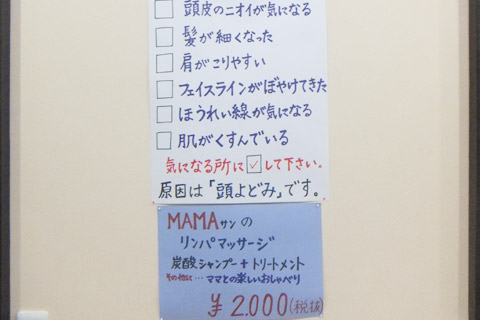 □ 頭皮のニオイが気になる
□ 髪が細くなった
□ 肩がこりやすい
□ フェイスラインがぼやけてきた
□ ほうれい線が気になる
□ 肌がくすんでいる
気になる所に☑して下さい。
原因は「頭よどみ」です。
MAMAサンの
リンパマッサージ
炭酸シャンプー+トリートメント
その他に…ママとの楽しいおしゃべり
¥2.000(税抜)